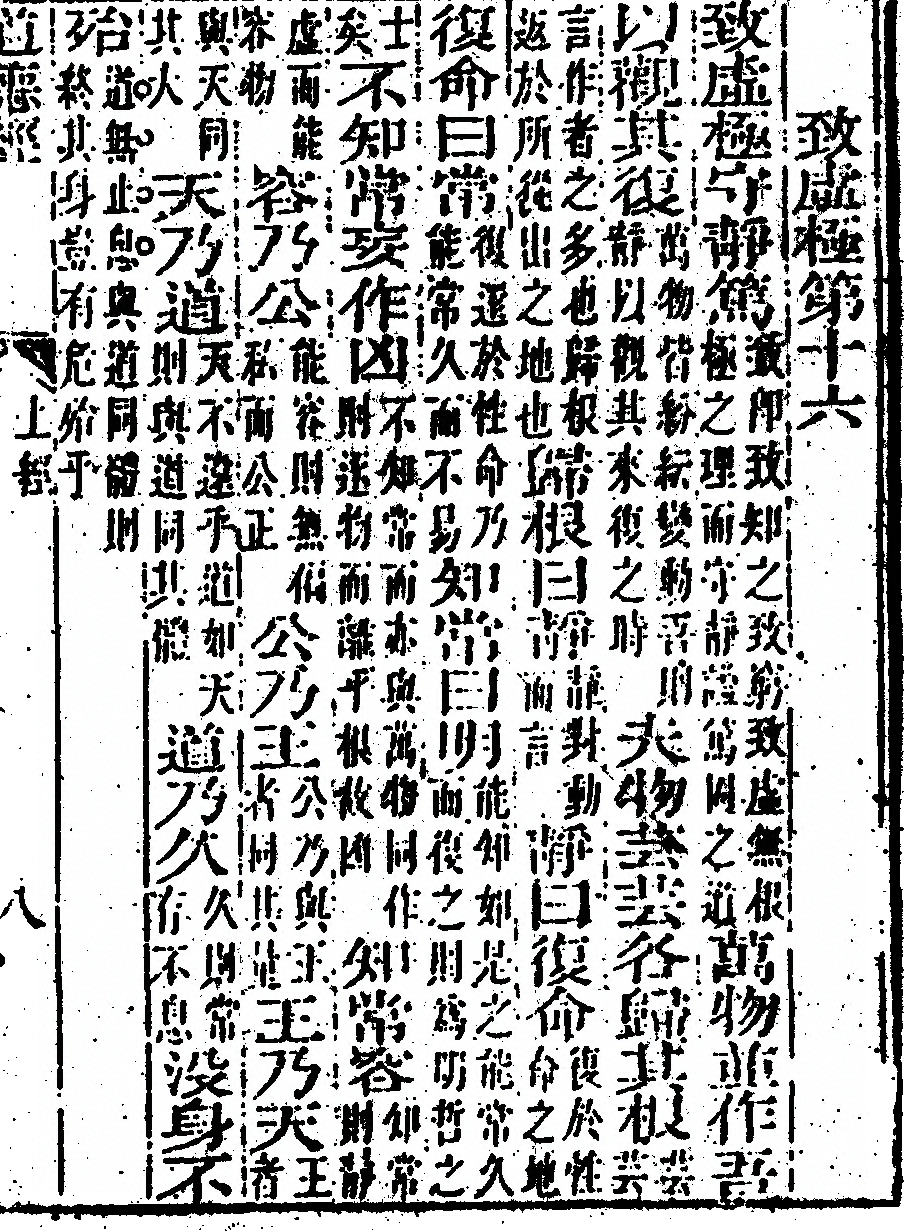 致虛極第十六
致虛極守靜篤致即致知之致窮致虛無根極之理而守靜謹篤固之道萬物並作吾
以觀其復出物皆紛紜變動吾則靜以觀其來復之時夫物芸芸各歸其根芸芸
言作者之多也歸根返於所從出之地也歸根曰靜靜對動而言靜曰復命復於性命之地
復命曰常復還於性命乃能常久而不易知常曰明能知如是之能常久而復之則為明哲之
士矣不知常妄作凶不知常而亦與萬物同作則逐物而離乎根故凶知常容知常則靜
虛而能容物容乃公能容則無偏私而公正公乃王公乃與王者同其量王乃天王者
與天同其大天乃道天不遠乎道如天則與道同其體道乃久久則常存不息沒身不
殆道無止息與道同體則終其身豈有危殆乎
道德經 上經 八